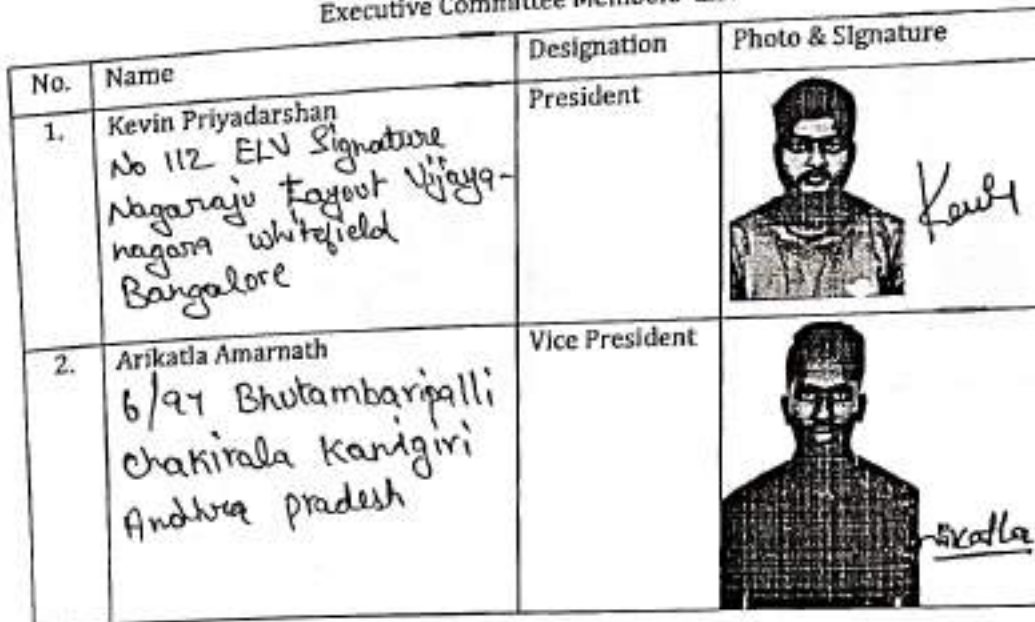 Executive Committee Members
No.
Name
Designation
Photo & Signature
1.
Kevin Priyadarshan
No 112 ELV Signature
Nagaraju Layout Vijaya-
nagara whitefield
Bangalore
President
2.
Arikatla Amarnath
6/97 Bhutambaripalli
chakirala Kanigiri
Andhra pradesh
Vice President